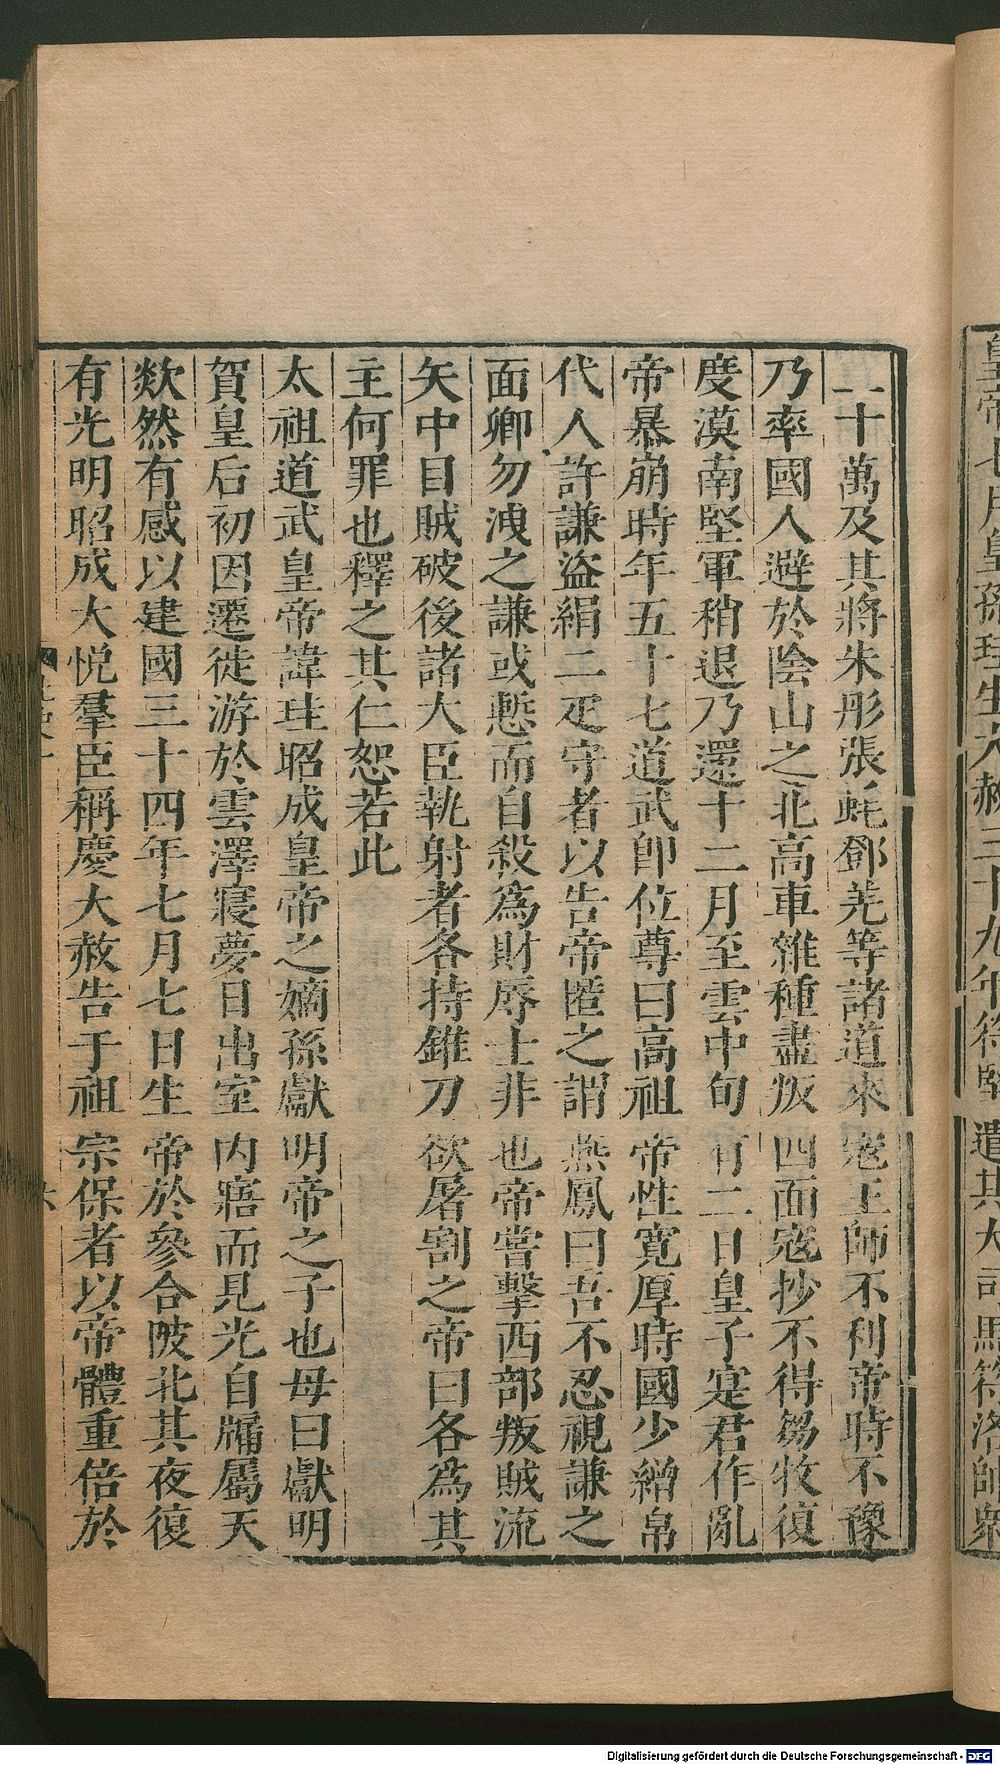 皇帝七月皇孫珪生大赦三十九年符堅遣其大司馬符洛帥衆
二十萬及其將朱彤張蚝鄧羌等諸道來寇王師不利帝時不豫
乃率國人避於陰山之北高車雜種盡叛四面寇抄不得芻牧復
度漠南堅軍稍退乃還十二月至雲中旬有二日皇子寔君作亂
帝暴崩時年五十七道武即位尊曰高祖帝性寬厚時國少繒帛
代人許謙盜絹二疋守者以告帝匿之謂燕鳳曰吾不忍視謙之
面卿勿洩之謙或慙而自殺爲財辱士非也帝嘗擊西部叛賊流
矢中目賊破後諸大臣執射者各持錐刀欲屠割之帝曰各爲其
主何罪也釋之其仁恕若此
太祖道武皇帝諱珪昭成皇帝之嫡孫獻明帝之子也母曰獻明
賀皇后初因遷徙游於雲澤寢夢日出室内寤而見光自牖屬天
欻然有感以建國三十四年七月七日生帝於參合陂北其夜復
有光明昭成大悅羣臣稱慶大赦告于祖宗保者以帝體重倍於
Digitalisierung gefördert durch die Deutsche Forschungsgemeinschaft - DFG